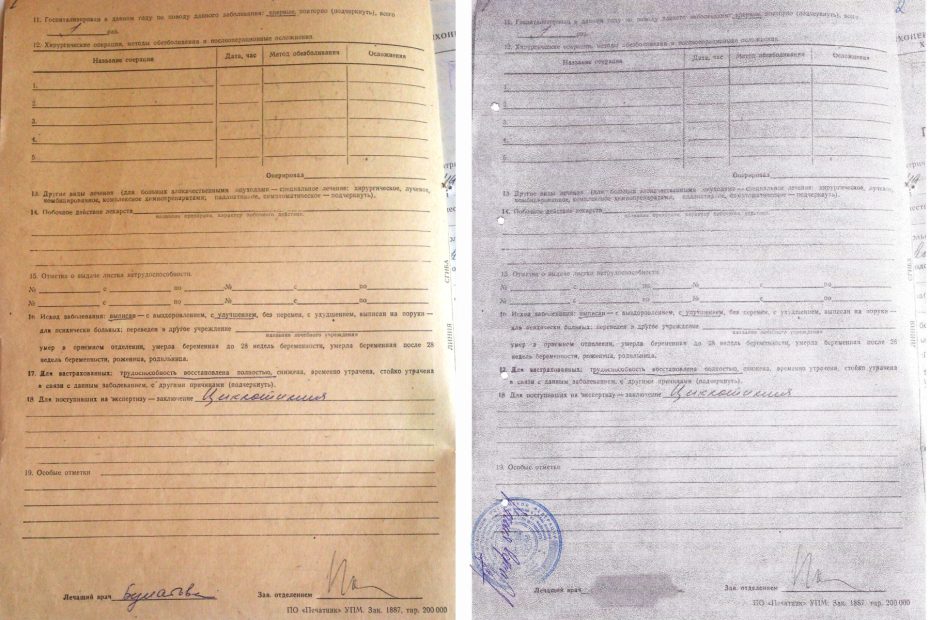 11. Госпитализирован в данном году по поводу данного заболевания: впервые, повторно (подчеркнуть), всего
1 раз.
12. Хирургические операции, методы обезболивания и послеоперационные осложнения.
Название операции Дата, час Метод обезболивания Осложнения
1.
2.
3.
4.
5.
Оперировал
13. Другие виды лечения (для больных злокачественными опухолями — специальное лечение: хирургическое, лучевое,
комбинированное, комплексное химиопрепаратами, паллиативное, симптоматическое — подчеркнуть).
14. Побочное действие лекарств
название препарата, характер побочного действия.
15. Отметка о выдаче листка нетрудоспособности.
№ с по № с по
№ с по № с по
16. Исход заболевания: выписан — с выздоровлением, с улучшением, без перемен, с ухудшением, выписан на поруки —
для психически больных; переведен в другое учреждение
название лечебного учреждения
умер в приемном отделении, умерла беременная до 28 недель беременности, умерла беременная после 28
недель беременности, роженица, родильница.
17. Для застрахованных: трудоспособность восстановлена полностью, снижена, временно утрачена, стойко утрачена
в связи с данным заболеванием, с другими причинами (подчеркнуть).
18 Для поступивших на экспертизу — заключение Циклотимия
19. Особые отметки
Лечащий врач Булатова
Зав. отделением
ПО «Печатник» УПМ. Зак. 1887. тир. 200 000
ЛИНИЯ СГИБА
2
11. Госпитализирован в данном году по поводу данного заболевания: впервые, повторно (подчеркнуть), всего
1 раз.
12. Хирургические операции, методы обезболивания и послеоперационные осложнения.
Название операции Дата, час Метод обезболивания Осложнения
1.
2.
3.
4.
5.
Оперировал
13. Другие виды лечения (для больных злокачественными опухолями — специальное лечение: хирургическое, лучевое,
комбинированное, комплексное химиопрепаратами, паллиативное, симптоматическое — подчеркнуть).
14. Побочное действие лекарств
название препарата, характер побочного действия.
15. Отметка о выдаче листка нетрудоспособности.
№ с по № с по
№ с по № с по
16. Исход заболевания: выписан — с выздоровлением, с улучшением, без перемен, с ухудшением, выписан на поруки —
для психически больных; переведен в другое учреждение
название лечебного учреждения
умер в приемном отделении, умерла беременная до 28 недель беременности, умерла беременная после 28
недель беременности, роженица, родильница.
17. Для застрахованных: трудоспособность восстановлена полностью, снижена, временно утрачена, стойко утрачена
в связи с данным заболеванием, с другими причинами (подчеркнуть).
18 Для поступивших на экспертизу — заключение Циклотимия
19. Особые отметки
Лечащий врач
Зав. отделением
ПО «Печатник» УПМ. Зак. 1887. тир. 200 000
ЛИНИЯ СГИБА